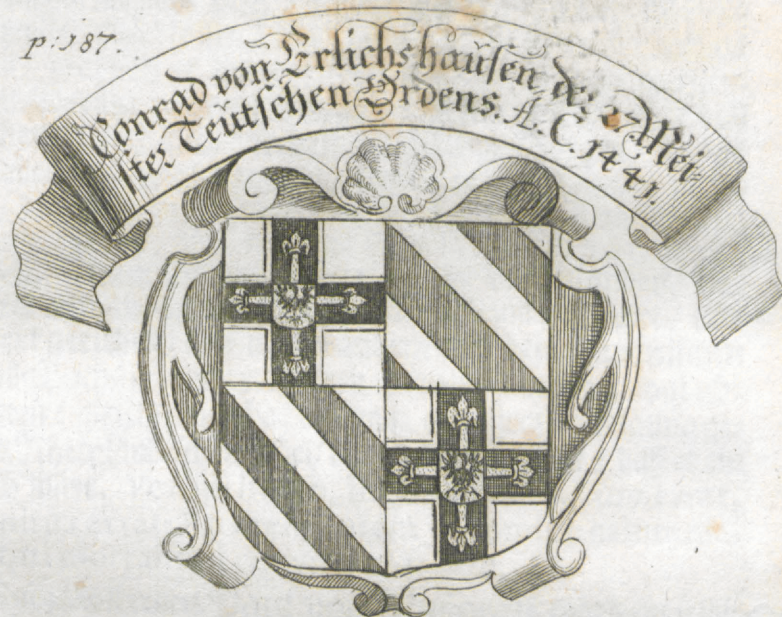 p: 187.
Conrad von Erlichshausen, der Mei-
ster Teutschen Ordens. A. C. 1441.